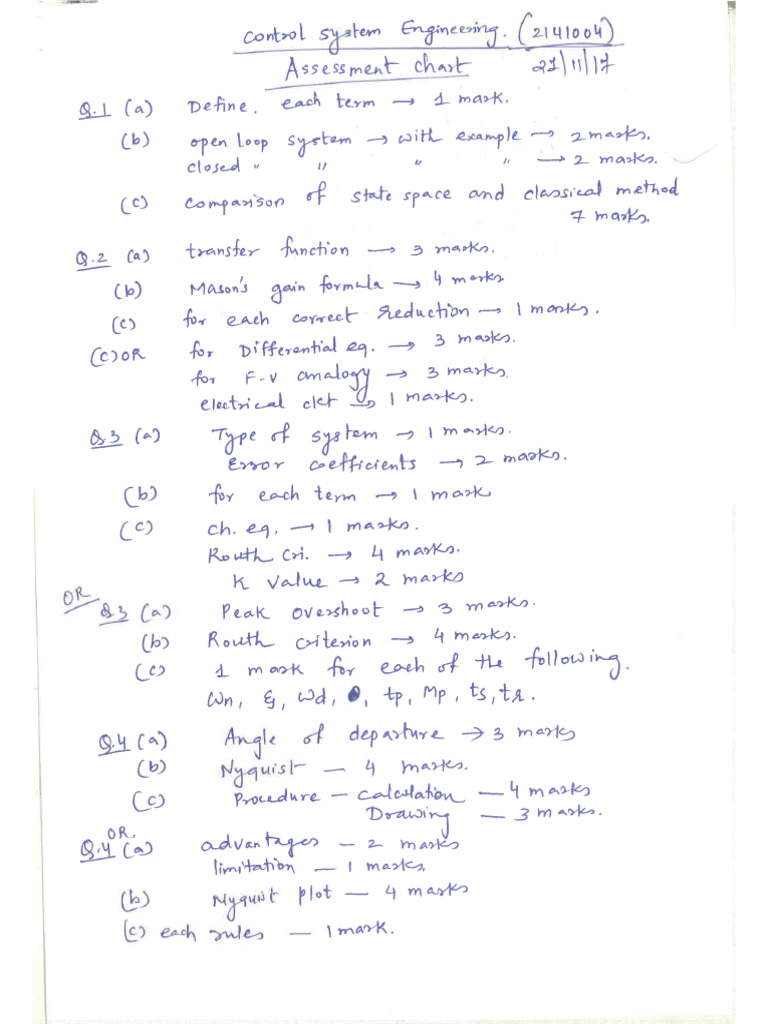 Control System Engineering. (2141004)
Assessment chart 27/11/17
Q.1 (a) Define. each term → 1 mark.
(b) open loop system → with example → 2 marks.
closed " " " " → 2 marks.
(c) comparison of state space and classical method
7 marks.
Q.2 (a) transfer function → 3 marks.
(b) Mason's gain formula → 4 marks
(c) for each correct reduction → 1 marks.
(c) OR for Differential eq. → 3 marks.
for F-V analogy → 3 marks.
electrical ckt → 1 marks.
Q.3 (a) Type of system → 1 marks.
Error coefficients → 2 marks.
(b) for each term → 1 mark
(c) ch. eq. → 1 marks.
Routh Cri. → 4 marks.
K value → 2 marks
OR
Q.3 (a) Peak overshoot → 3 marks.
(b) Routh criterion → 4 marks.
(c) 1 mark for each of the following.
Wn, ξ, Wd, tp, Mp, ts, tr.
Q.4 (a) Angle of departure → 3 marks
(b) Nyquist — 4 marks.
(c) Procedure — calculation — 4 marks
Drawing — 3 marks.
OR.
Q.4 (a) advantages — 2 marks
limitation — 1 marks,
(b) Nyquist plot — 4 marks
(c) each rules — 1 mark.